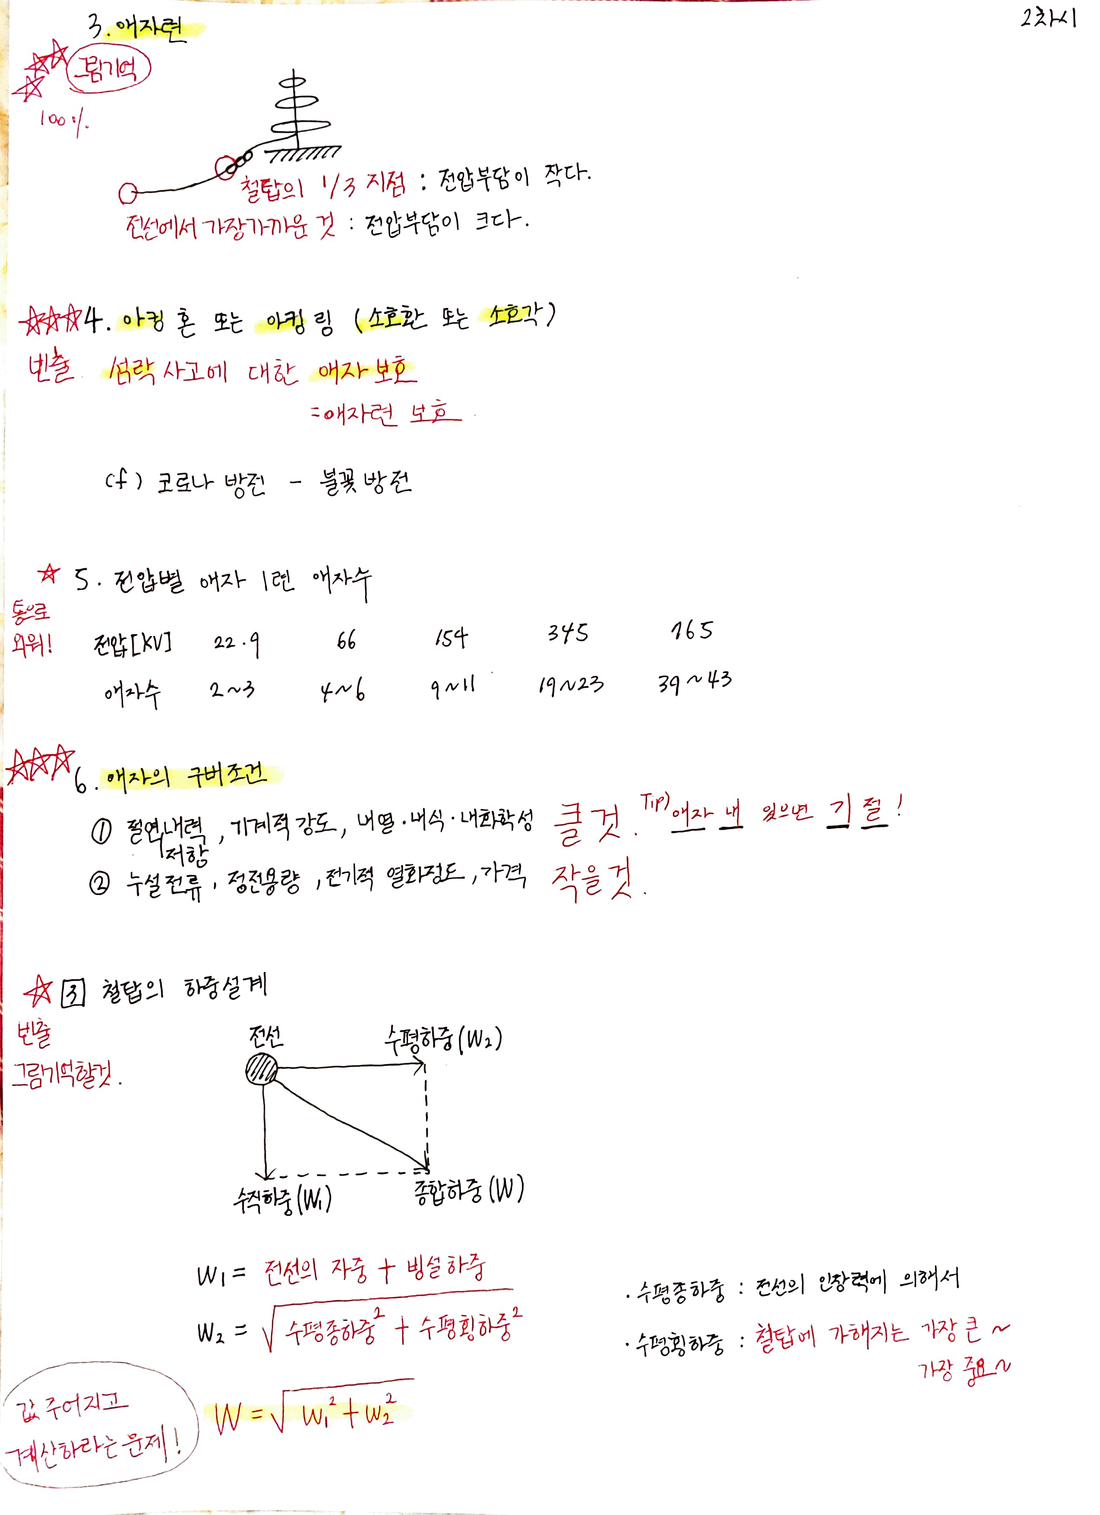 2차시
3. 애자련
그림기억
100%
철탑의 1/3 지점 : 전압부담이 작다.
전선에서 가장가까운 것 : 전압부담이 크다.
4. 아킹 혼 또는 아킹 링 (소호환 또는 소호각)
빈출 섬락 사고에 대한 애자 보호
=애자련 보호
cf) 코로나 방전 - 불꽃 방전
5. 전압별 애자 1련 애자수
통으로
외워!
전압[kV] 22.9 66 154 345 765
애자수 2~3 4~6 9~11 19~23 39~43
6. 애자의 구비조건
① 절연내력, 기계적 강도, 내열·내식·내화학성 클것. Tip) 애자 내 있으면 기절!
저항
② 누설전류, 정전용량, 전기적 열화정도, 가격 작을것.
3 철탑의 하중설계
빈출
그림기억할것.
전선 수평하중(W2)
수직하중(W1) 종합하중(W)
W1 = 전선의 자중 + 빙설하중
W2 = √수평종하중² + 수평횡하중²
·수평종하중 : 전선의 인장력에 의해서
·수평횡하중 : 철탑에 가해지는 가장 큰 ~
가장 중요~
값 주어지고
계산하라는 문제!
W = √W1² + W2²